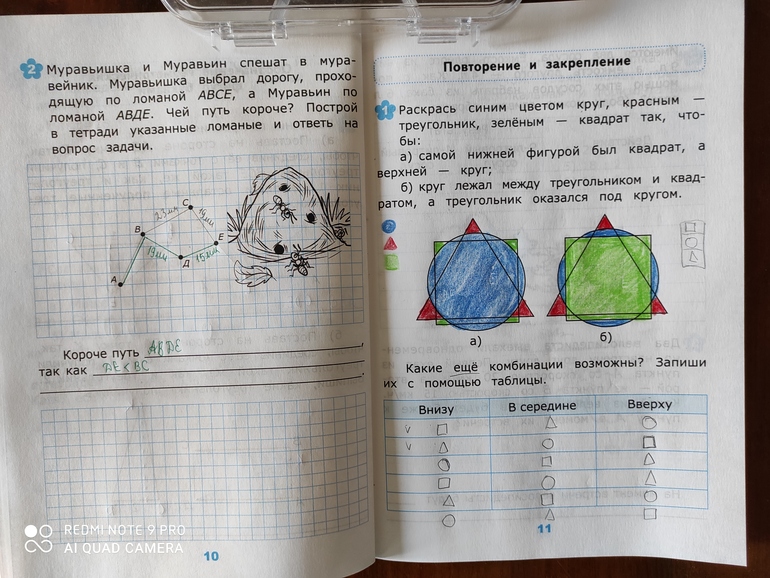 2 Муравьишка и Муравьин спешат в мура-
вейник. Муравьишка выбрал дорогу, прохо-
дящую по ломаной АВСЕ, а Муравьин по
ломаной АВДЕ. Чей путь короче? Построй
в тетради указанные ломаные и ответь на
вопрос задачи.
С
23мм
14мм
В
Е
19мм
Д
15мм
А
Короче путь АВДЕ
так как ДЕ < ВС
REDMI NOTE 9 PRO
AI QUAD CAMERA
10
Повторение и закрепление
1 Раскрась синим цветом круг, красным —
треугольник, зелёным — квадрат так, что-
бы:
а) самой нижней фигурой был квадрат, а
верхней — круг;
б) круг лежал между треугольником и квад-
ратом, а треугольник оказался под кругом.
а)
б)
Какие ещё комбинации возможны? Запиши
их с помощью таблицы.
Внизу В середине Вверху
11